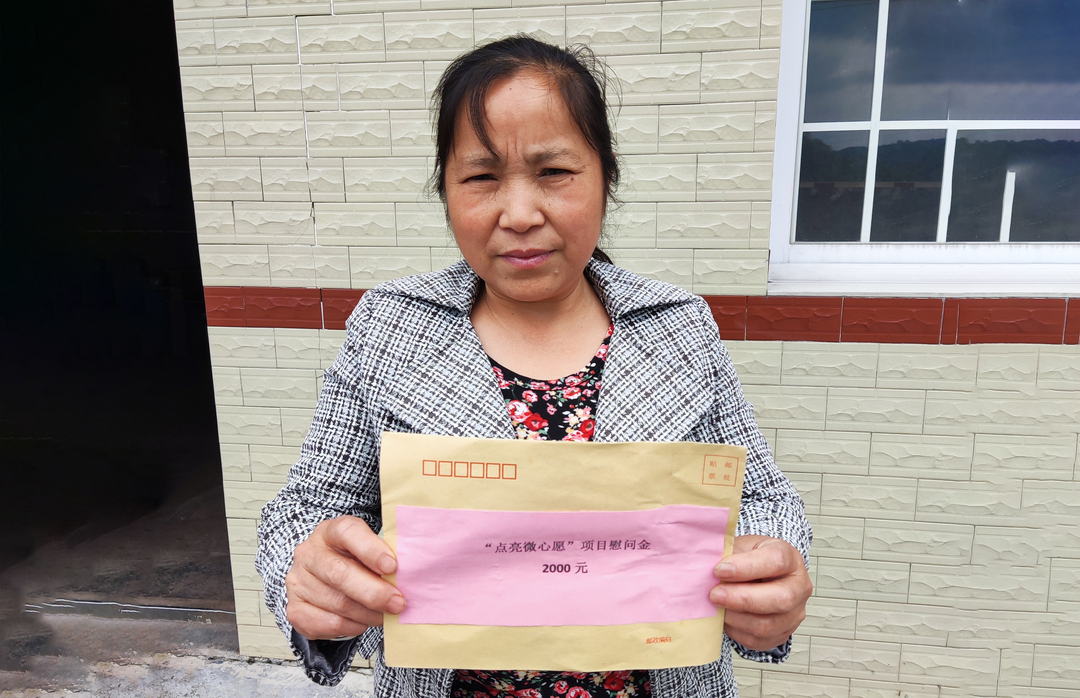 贴 邮
票 处
“点亮微心愿”项目慰问金
2000 元
邮政编码